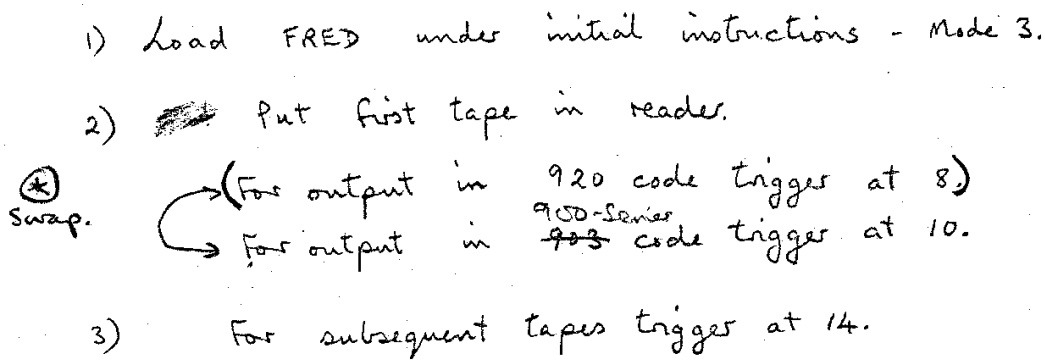 1) Load FRED under initial instructions - Mode 3.
2) Put first tape in reader.
* Swap.
(For output in 920 code trigger at 8.)
For output in 903 900-Series code trigger at 10.
3) For subsequent tapes trigger at 14.